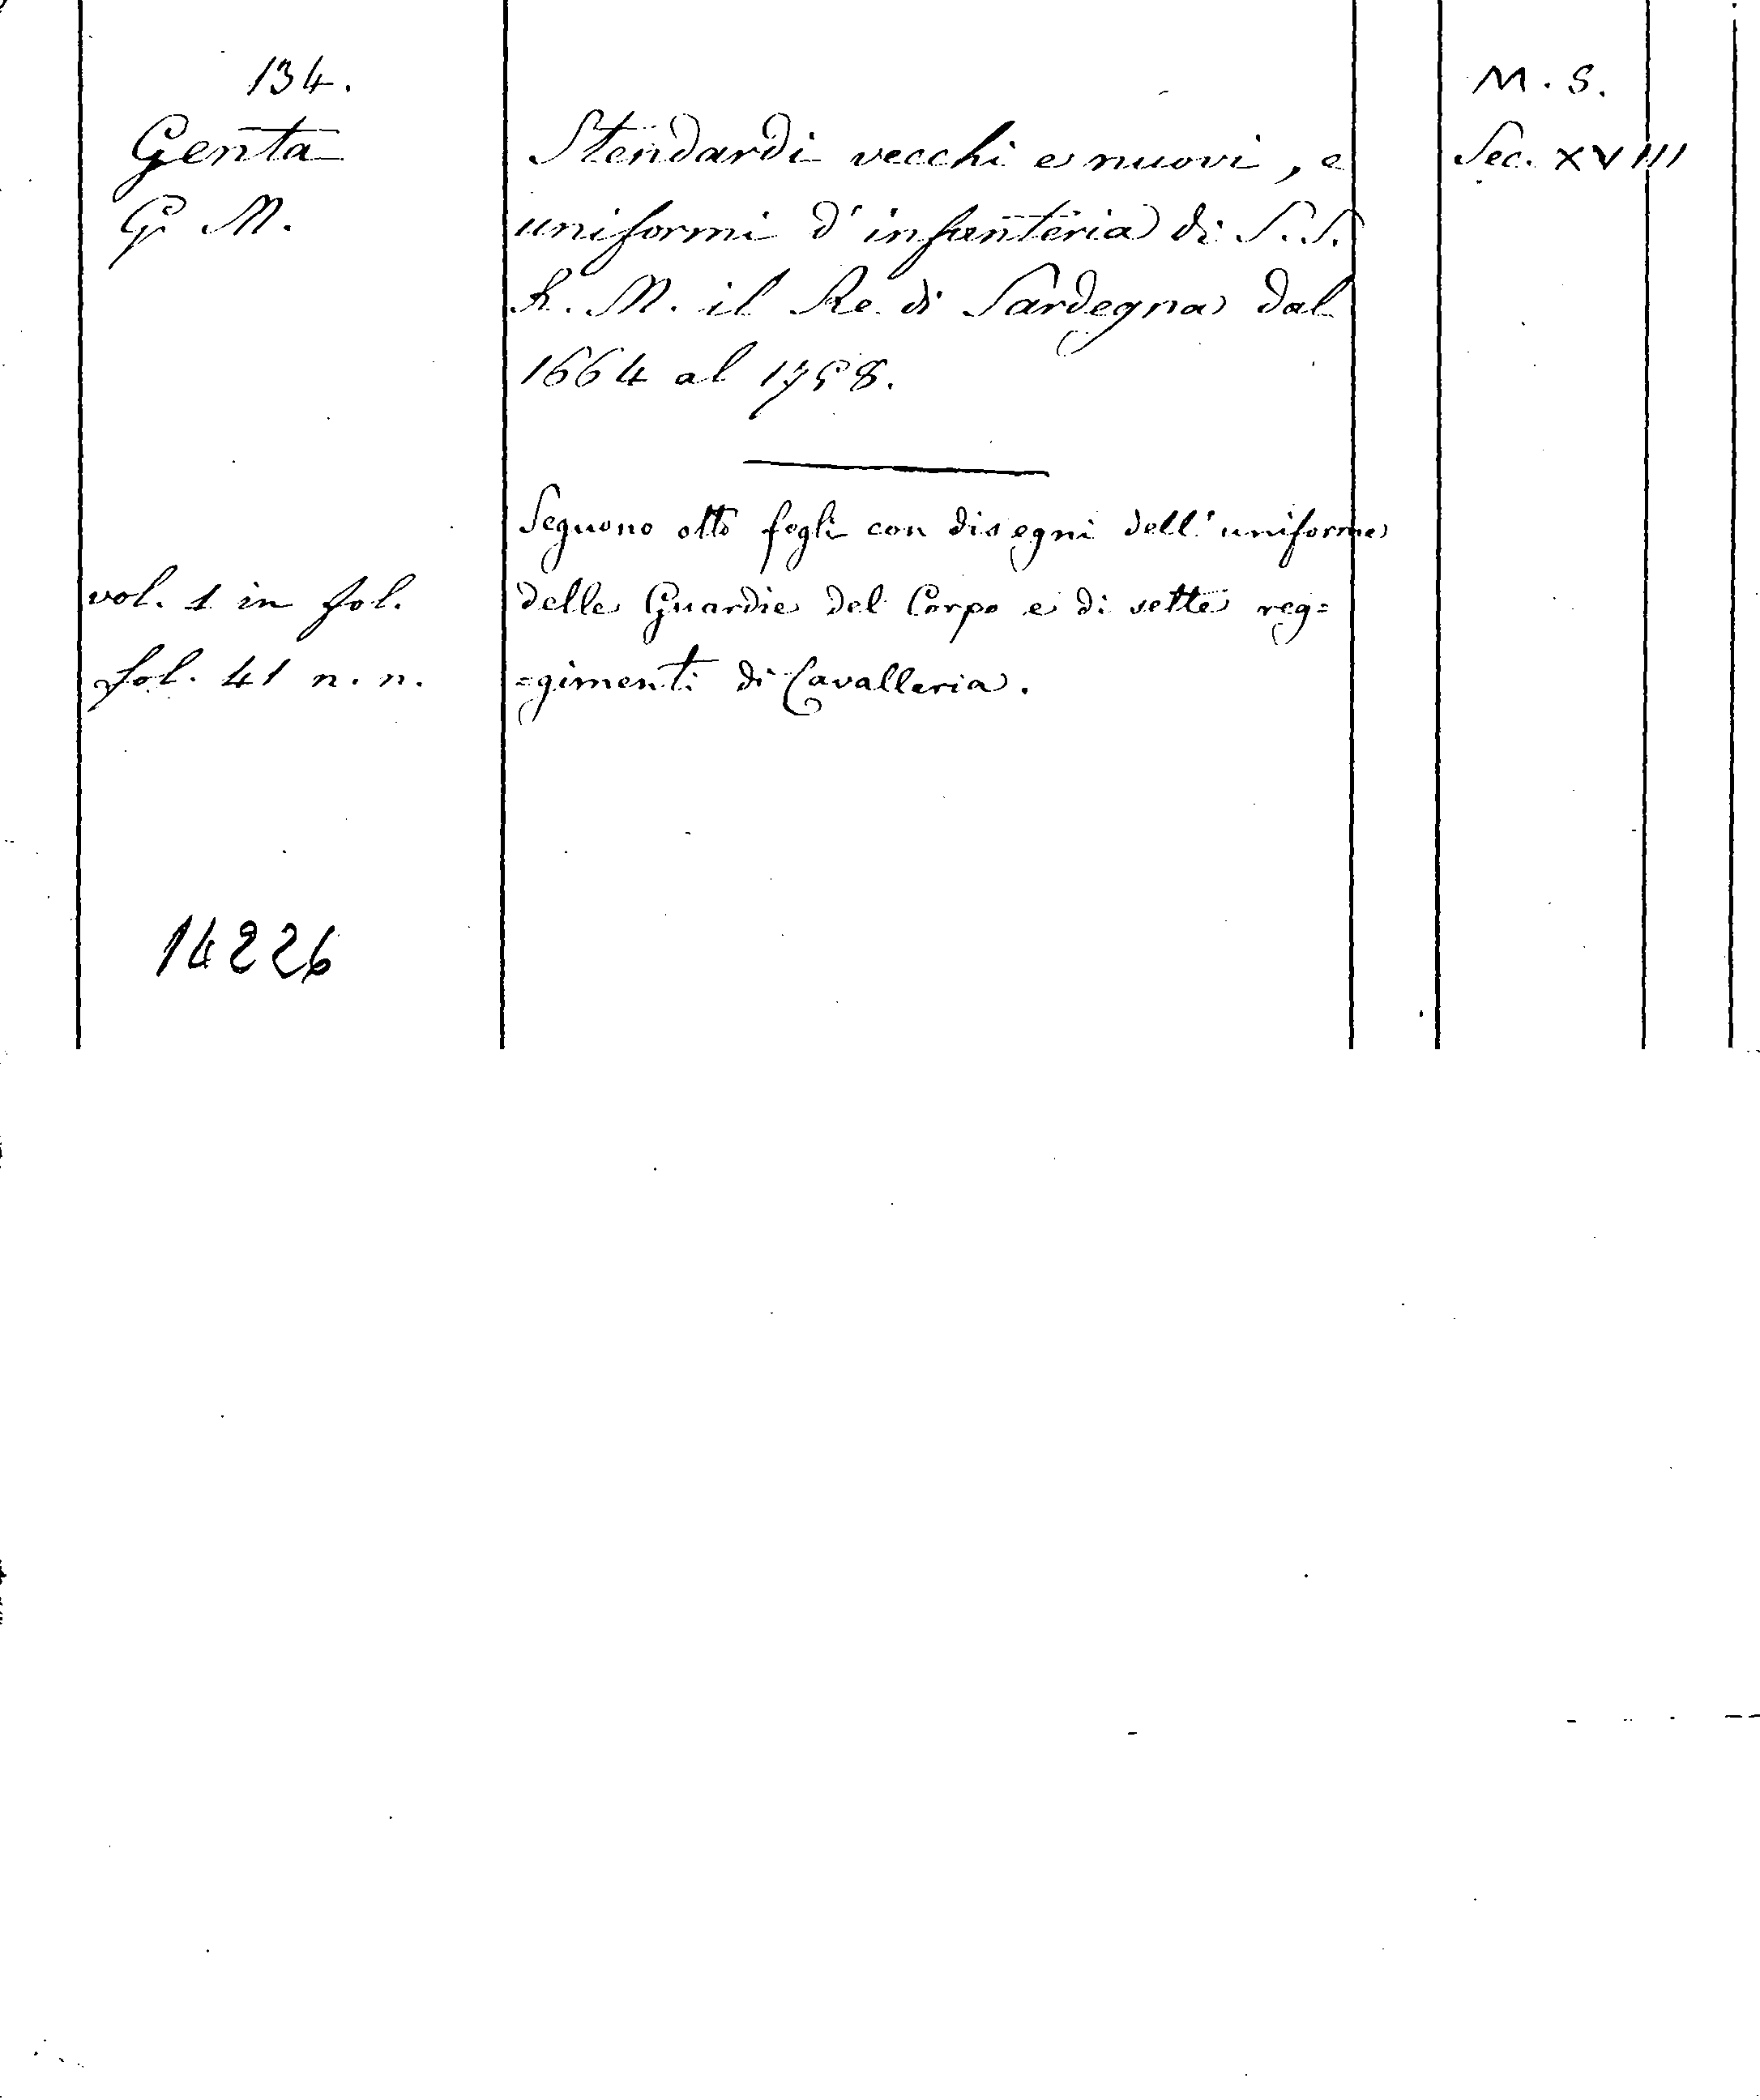 134.
Genta
G. M.
vol. 1 in fol.
fol. 41 n. n.
14226
Stendardi vecchi e nuovi, e
uniformi d'infanteria di S. S.
R. M. il Re di Sardegna dal
1664 al 1758.
Seguono otto fogli con disegni dell'uniforme
delle Guardie del Corpo e di sette reg=
=gimenti di Cavalleria.
M. S.
Sec. XVIII